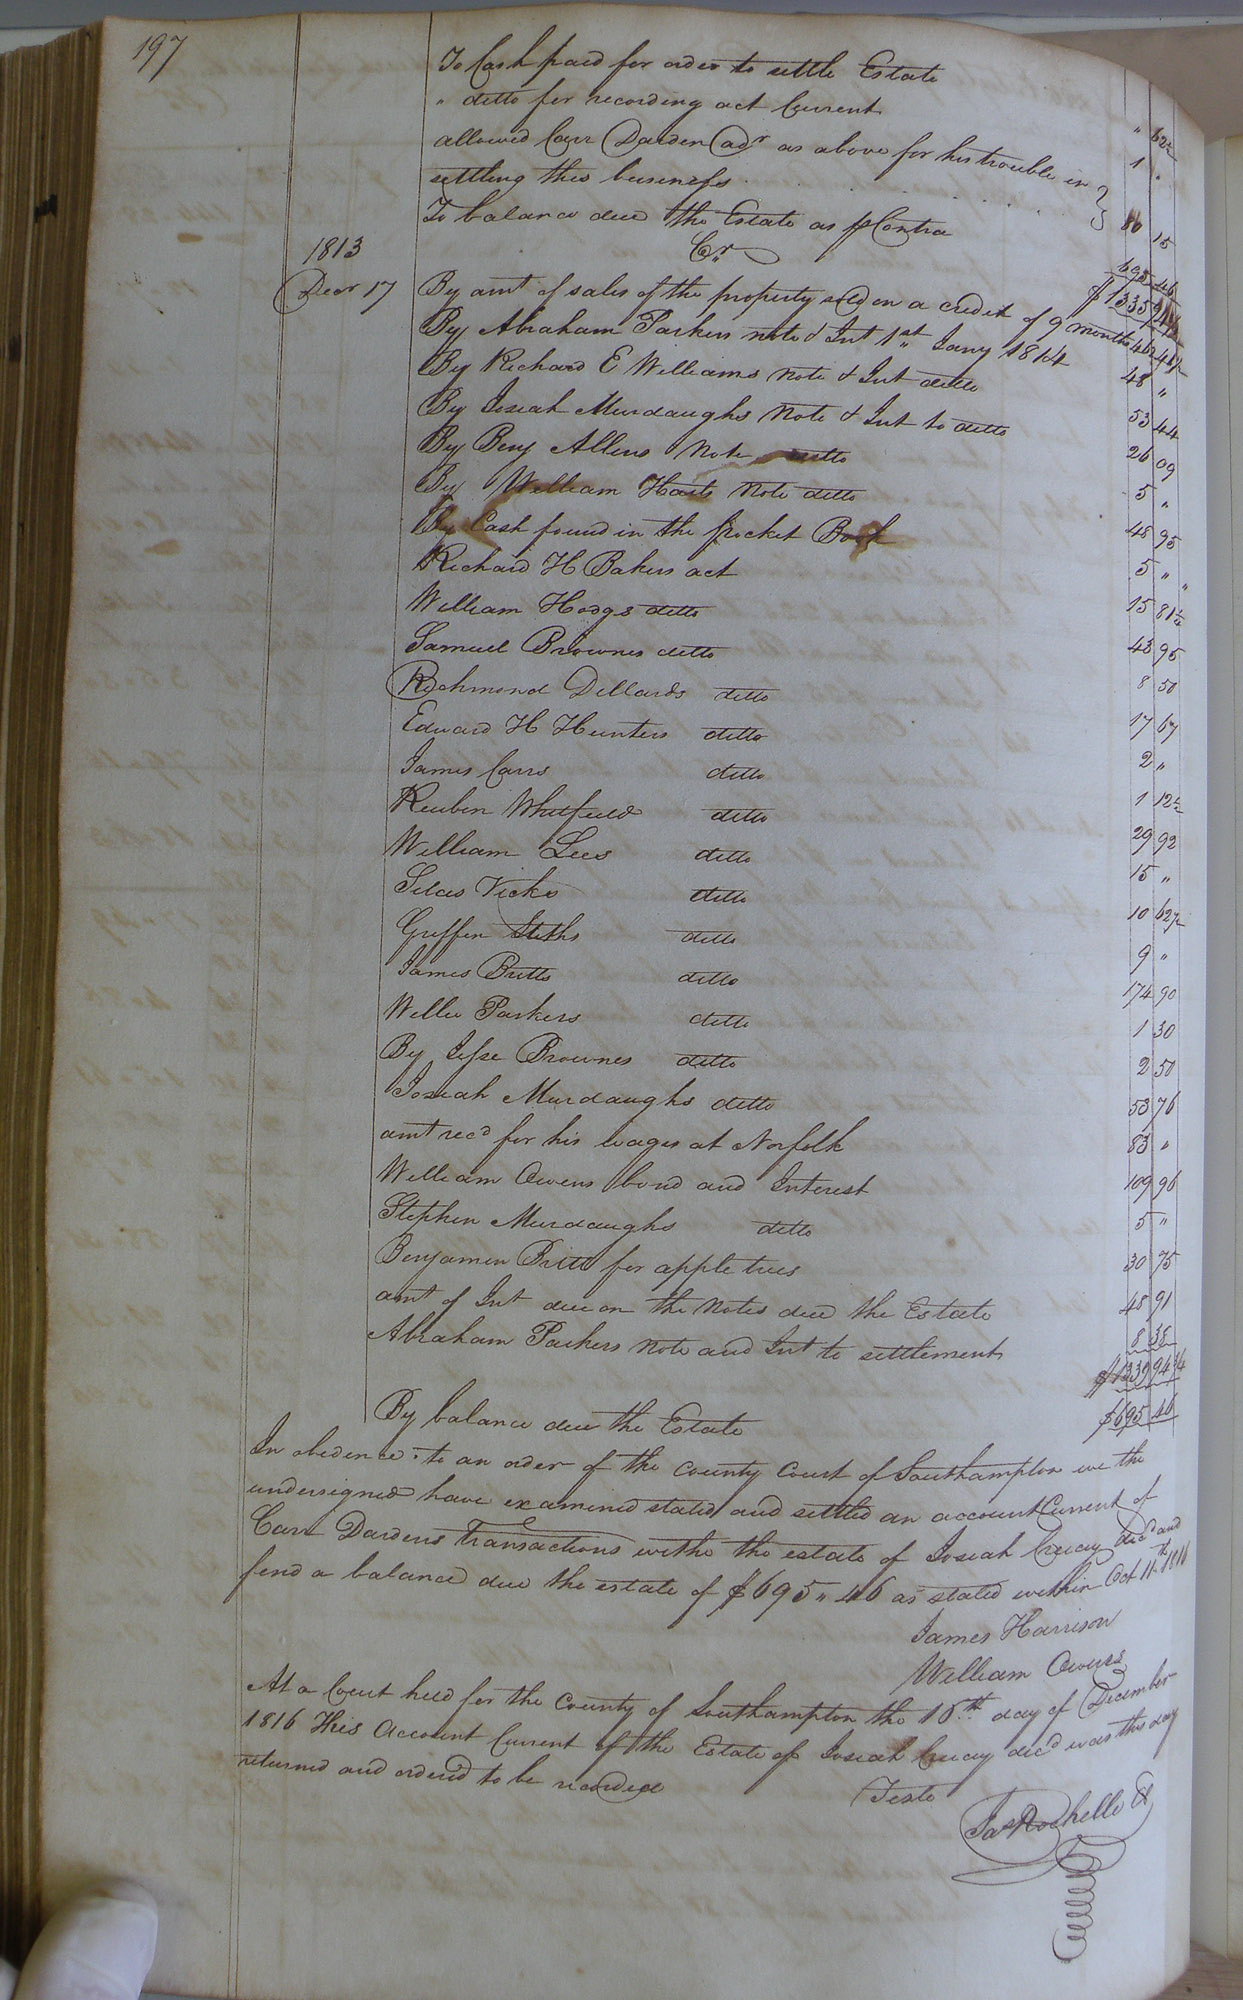 197
To Cash paid for order to settle Estate " 62½
" ditto for recording act Current 1 "
allowed Carr Darden adr as above for his trouble in
settling this business 86 15
To balance due the Estate as pContra 695 46
Cr $1335 94
1813
Decr 17 By amt of sales of the property sold on a credit of 9 months 462 46½
By Abraham Parkers note & Int 1st Jany 1814 48 "
By Richard E Williams note & Int ditto 53 44
By Josiah Murdaughs Note & Int to ditto 26 09
By Benj Allens Note ditto 5 "
By William Harts Note ditto 48 95
By Cash found in the pocket Book 5 "
Richard H Bakers act 15 81½
William Hodgs ditto 43 95
Samuel Brownes ditto 8 50
Richmond Dillards ditto 17 67
Edward H Hunters ditto 2 "
James Carrs ditto 1 12½
Reuben Whitfield ditto 29 92
William Lees ditto 15 "
Silas Vicks ditto 10 62½
Griffin Stiths ditto 9 "
James Britts ditto 174 90
Willie Parkers ditto 1 30
By Jesse Brownes ditto 2 50
Josiah Murdaughs ditto 53 76
amt recd for his wages at Norfolk 83 "
William Owens bond and Interest 109 96
Stephen Murdaughs ditto 5 "
Benjamin Britt for apple trees 30 75
amt of Int due on the Notes due the Estate 48 91
Abraham Parkers note and Int to settlement 8 38
$1339 94¾
By balance due the Estate $695 46
In obedence to an order of the County Court of Southampton we the
undersigned have examined stated and settled an account Current of
Carr Dardens Transactions withe the estate of Josiah Creacy decd and
find a balance due the estate of $695 " 46 as stated within Oct 11th 1816
James Harrison
William Owens
At a Court held for the County of Southampton the 16th day of December
1816 This Account Current of the Estate of Josiah Creacy decd was this day
returned and ordered to be recorded
Teste
Jas Rochelle Cl